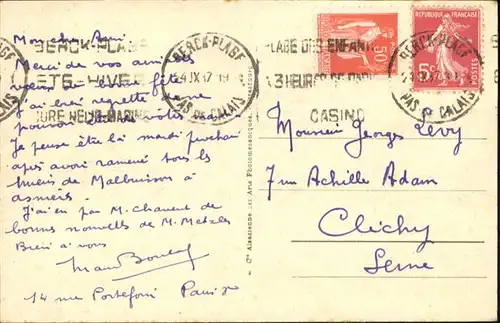 Mon cher Ami
Merci de vos aimables
vœux de bonne fête
J'ai bien regretté de ne
pouvoir
Je pense être là mardi prochain
après avoir ramené tous les
miens de Malbuisson à
Asnières.
J'ai eu par M. Chauvet de
bonnes nouvelles de M. Metzles
Bien à vous
14 rue Portefoin Paris 3e
BERCK-PLAGE
ETE-HIVER
CURE HELIO-MARINE
BERCK-PLAGE
PAS DE CALAIS
PLAGE DES ENFANTS
A 3 HEURES DE PARIS
CASINO
50
REPUBLIQUE FRANÇAISE
5c
BERCK-PLAGE
PAS DE CALAIS
Monsieur Georges Levy
7 rue Achille Adam
Clichy
Seine
Cie Alsacienne des Arts Photomécaniques